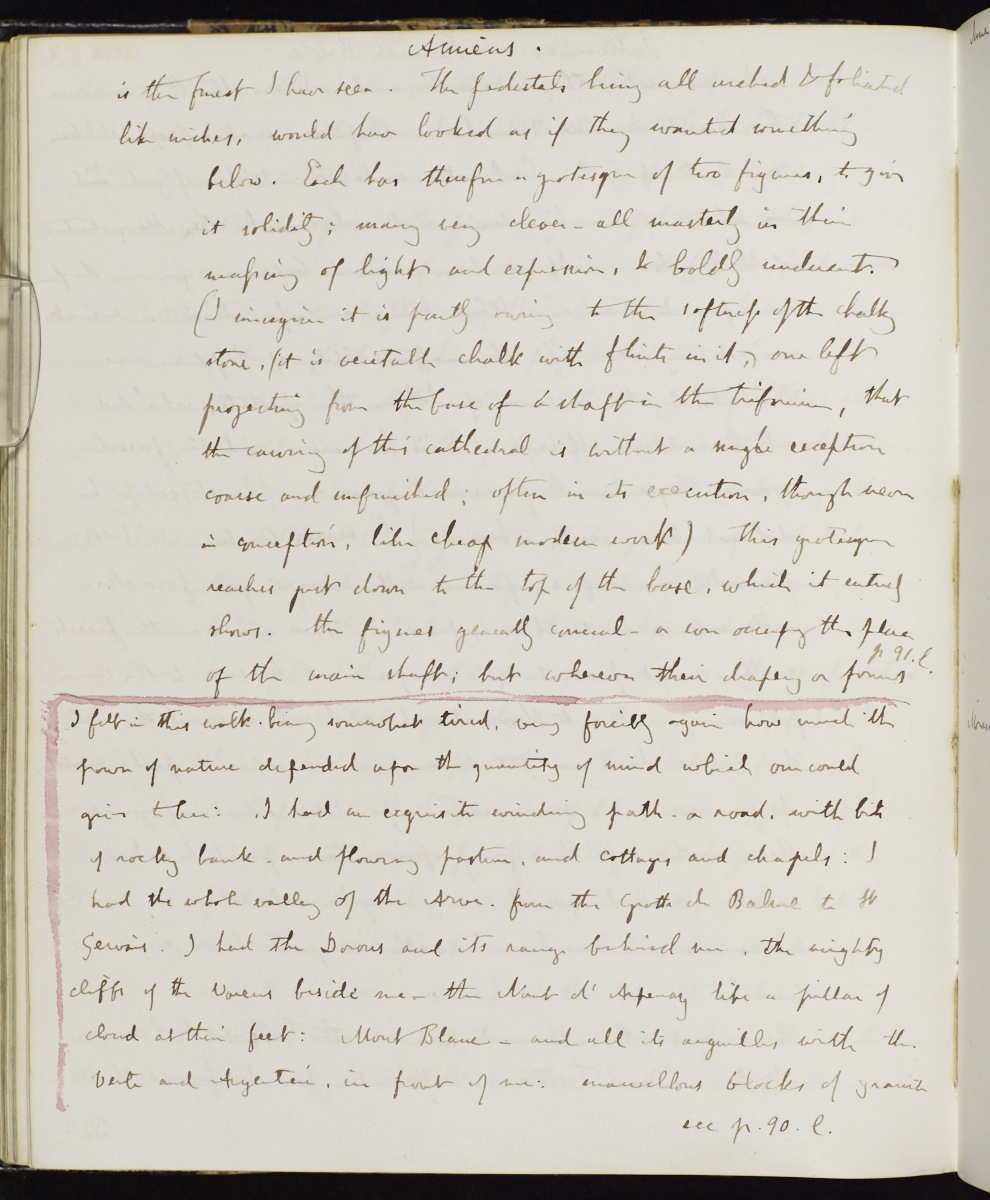 Amiens.
is the finest I have seen. The pedestals being all arched & foliated
like niches, would have looked as if they wanted something
below. Each has therefore a grotesque of two figures, to give
it solidity; many very clever - all masterly in their
massing of light and expression, & boldly undercut.
(I imagine it is partly owing to the softness of the chalky
stone, (it is veritable chalk with flints in it, one left
projecting from the base of a shaft in the triforium, that
the carving of this cathedral is without a single exception
coarse and unfinished; often in its execution, though never
in conception, like cheap modern work) This grotesque
reaches just down to the top of the base, which it entirely
shows. The figures generally conceal - or occupy the place
p 91. l.
of the main shaft; but whereon their drapery or forms
I felt in this walk. being somewhat tired, very forcibly again how much the
power of nature depended upon the quantity of mind which one could
give to her: I had an exquisite winding path - a road, with bits
of rocky bank - and flowing pasture, and cottages and chapels: I
had the whole valley of the Arve. from the Grotte de Balme to St
Gervais. I had the Dorons and its range behind me, the mighty
cliffs of the Varens beside me - the Nant d'Arpenaz like a pillar of
cloud at their feet: Mont Blanc - and all its aiguilles with the
Verte and Argentiere, in front of me: marvellous blocks of granite
see p. 90. l.